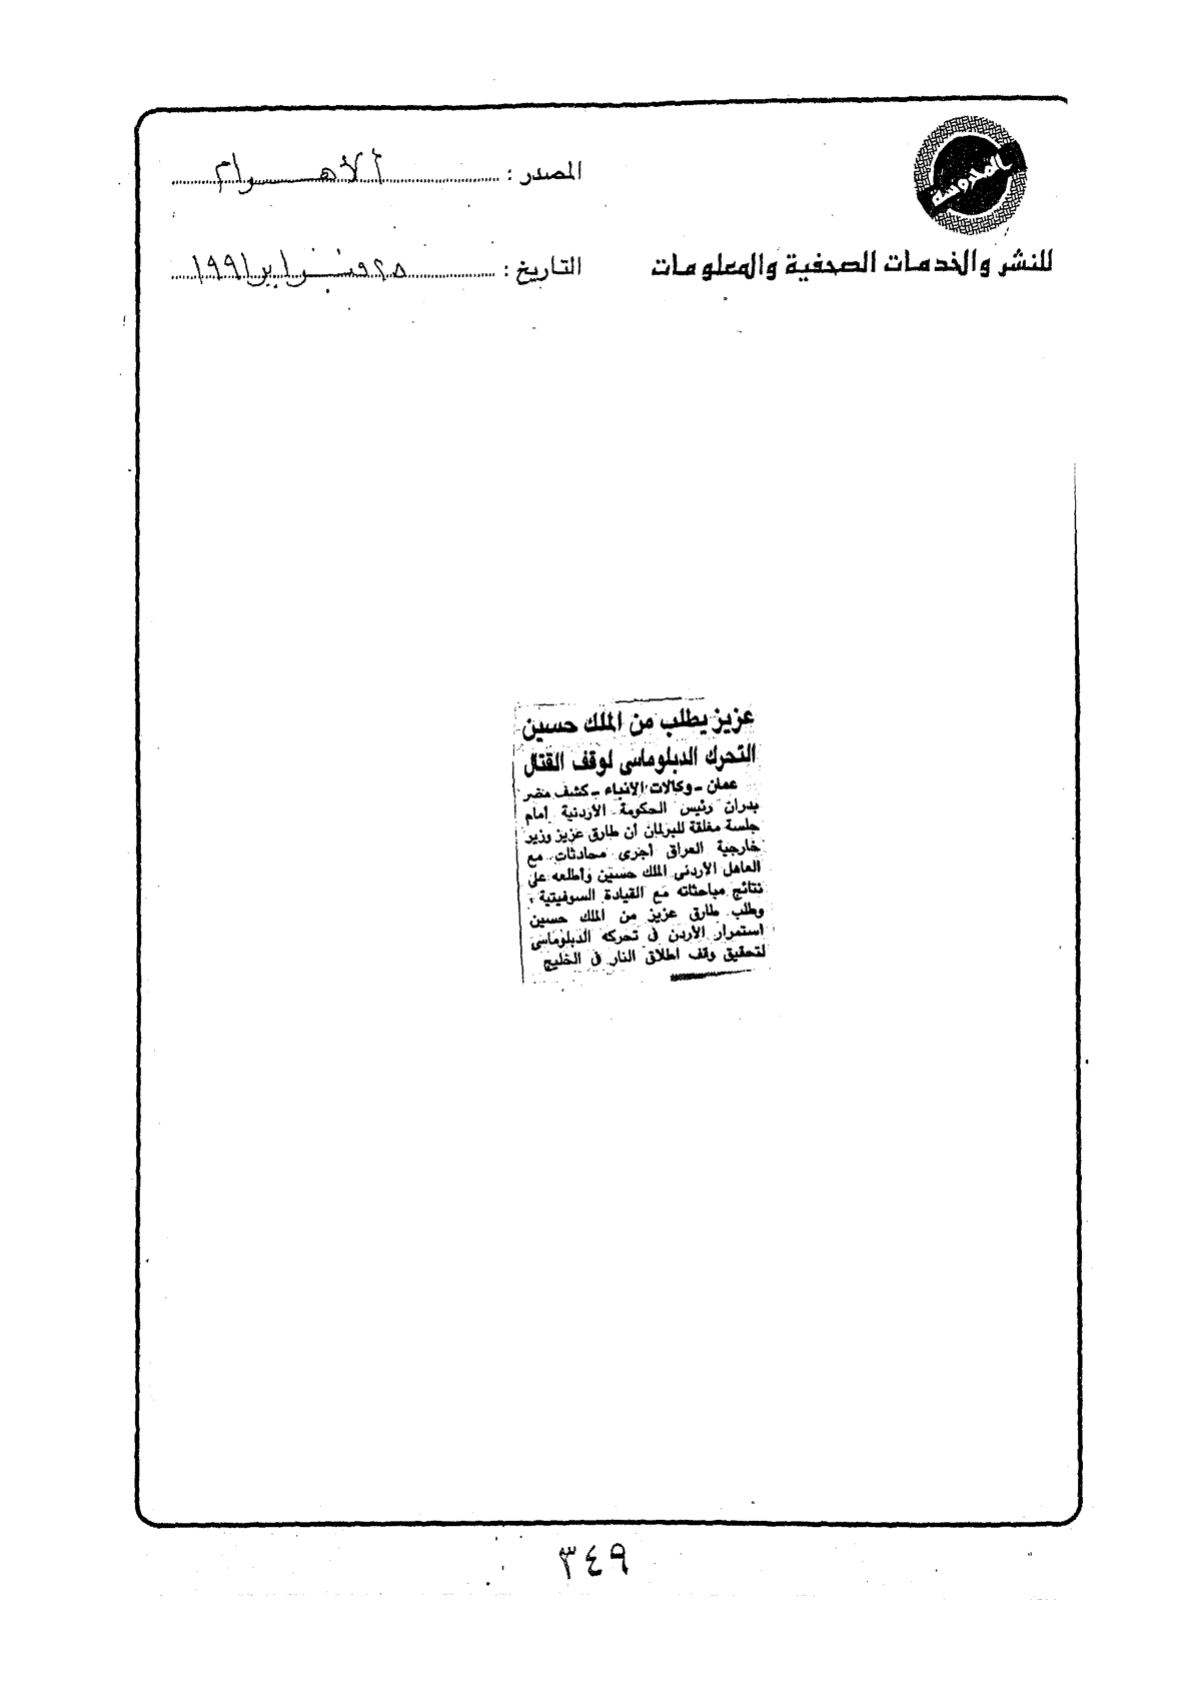 المحروسة
للنشر والخدمات الصحفية والمعلومات
المصدر : الأهرام
التاريخ : ٢٥ فبراير ١٩٩١
عزيز يطلب من الملك حسين
التحرك الدبلوماسى لوقف القتال
عمان - وكالات الأنباء - كشف مضر
بدران رئيس الحكومة الأردنية أمام
جلسة مغلقة للبرلمان أن طارق عزيز وزير
خارجية العراق أجرى محادثات مع
العاهل الأردنى الملك حسين وأطلعه على
نتائج مباحثاته مع القيادة السوفيتية ،
وطلب طارق عزيز من الملك حسين
استمرار الأردن فى تحركه الدبلوماسى
لتحقيق وقف اطلاق النار فى الخليج
٣٤٩